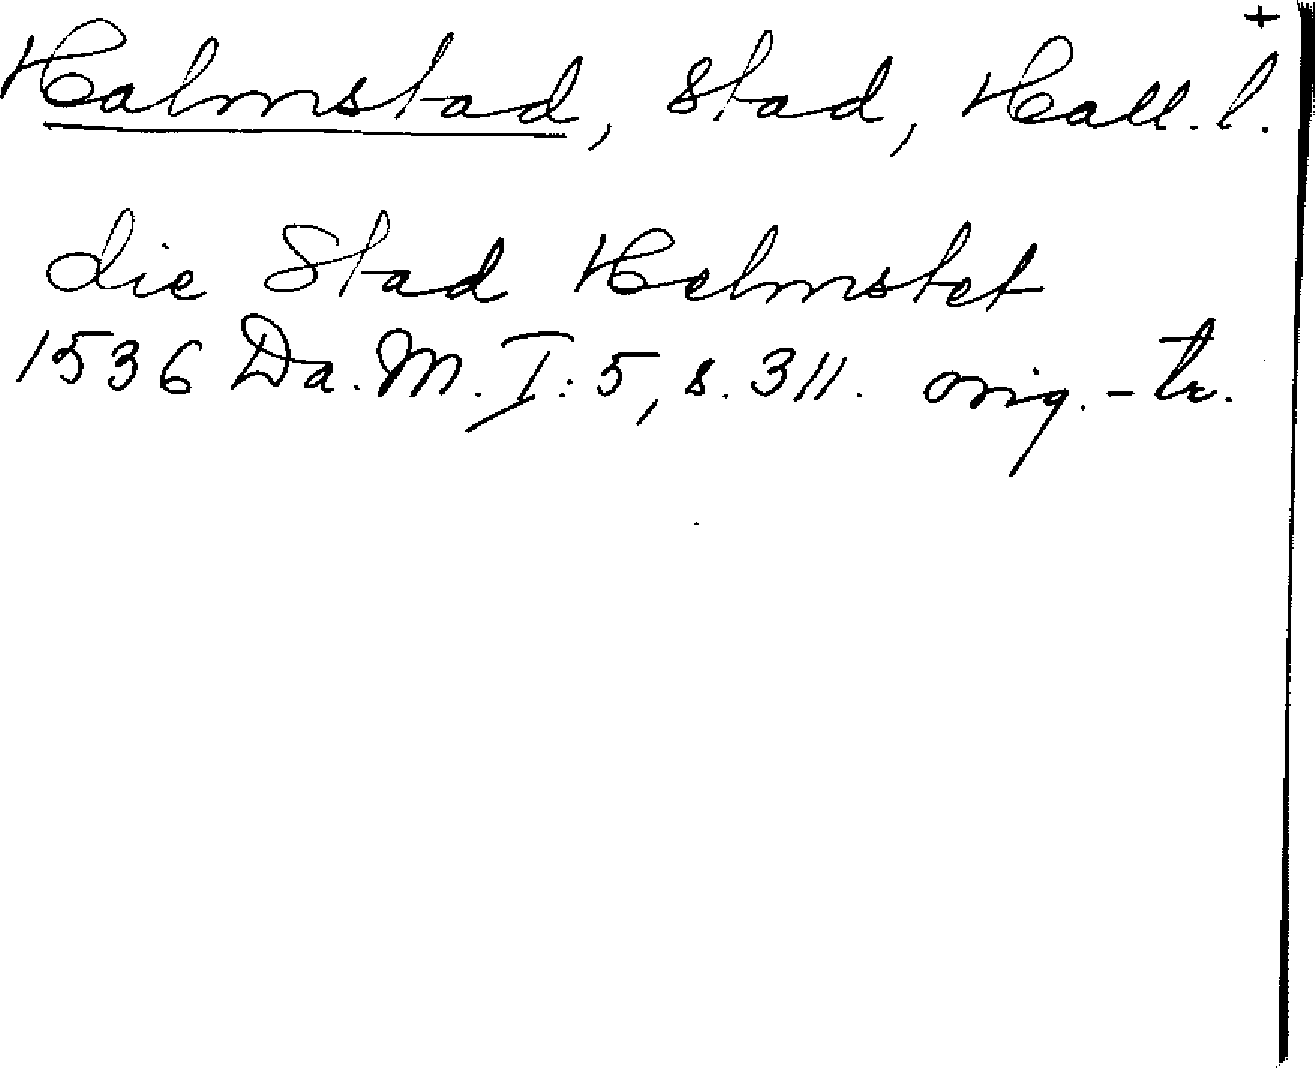 +
Halmstad, stad, Hall. l.
die Stad Helmstet
1536 Da. M. I: 5, s. 311. orig.-tr.